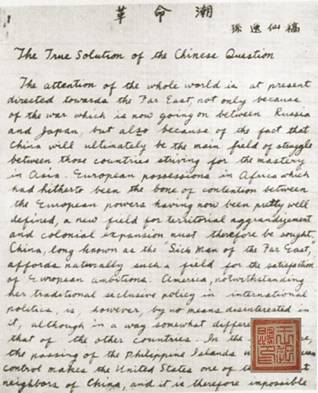 革命潮
孫逸仙稿
The True Solution of the Chinese Question
The attention of the whole world is at present
directed towards the Far East, not only because
of the war which is now going on between Russia
and Japan, but also because of the fact that
China will ultimately be the main field of struggle
between those countries striving for the mastery
in Asia. European possessions in Africa which
had hitherto been the bone of contention between
the European powers having now been pretty well
defined, a new field for territorial aggrandizement
and colonial expansion must therefore be sought.
China, long known as the "Sick Man of the Far East,"
affords naturally such a field for the satisfaction
of European ambitions. America, notwithstanding
her traditional seclusive policy in international
politics, is, however, by no means disinterested in
it, although in a way somewhat differe
that of the other countries. In the
the passing of the Philippine Islands
control makes the United States one of
neighbors of China, and it is therefore impossible